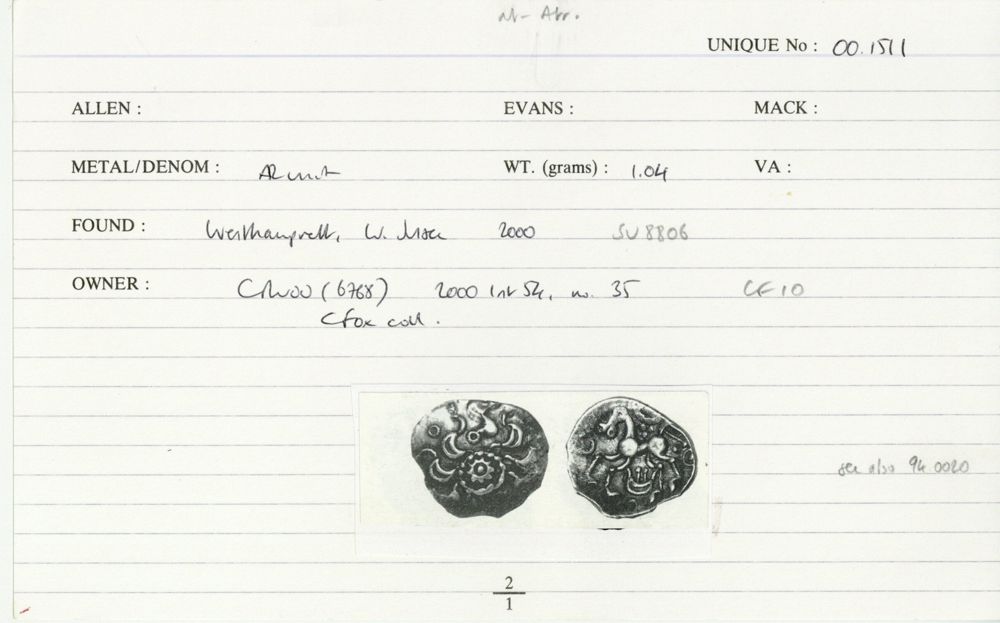 UNIQUE No : 00.1511
ALLEN : EVANS : MACK :
METAL/DENOM : AR unit WT. (grams) : 1.04 VA :
FOUND : Westhampnett, W. 2000 SU 8806
OWNER : (6768) 2000 54, no. 35 CF 10
C Fox coll.
see also 94 0020
2
1